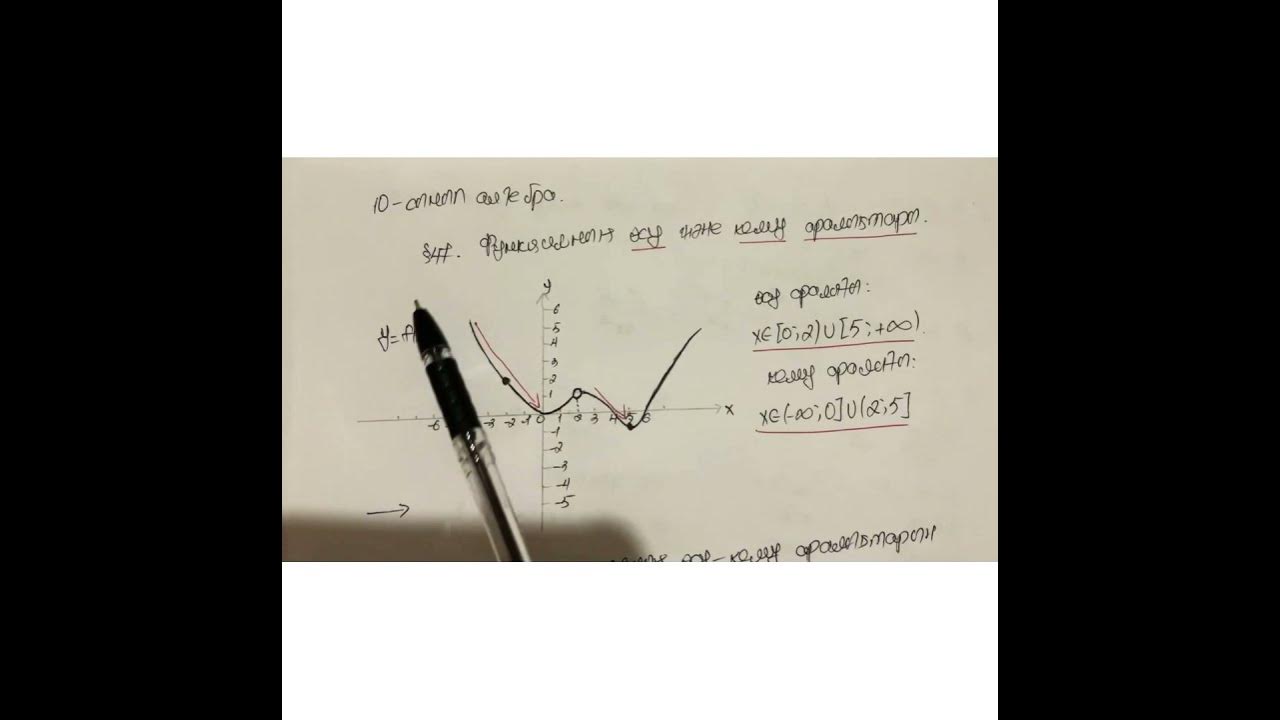 10-сынып алгебра.
§47. Функцияның өсу және кему аралықтары.
y
өсу аралығы:
x∈[0;2)∪[5;+∞)
кему аралығы:
x∈(-∞;0]∪(2;5]
y=f
6
5
4
3
2
1
-6 -3 -2 -1 0 1 2 3 4 5 6 x
-1
-2
-3
-4
-5
өсу-кему аралықтарын